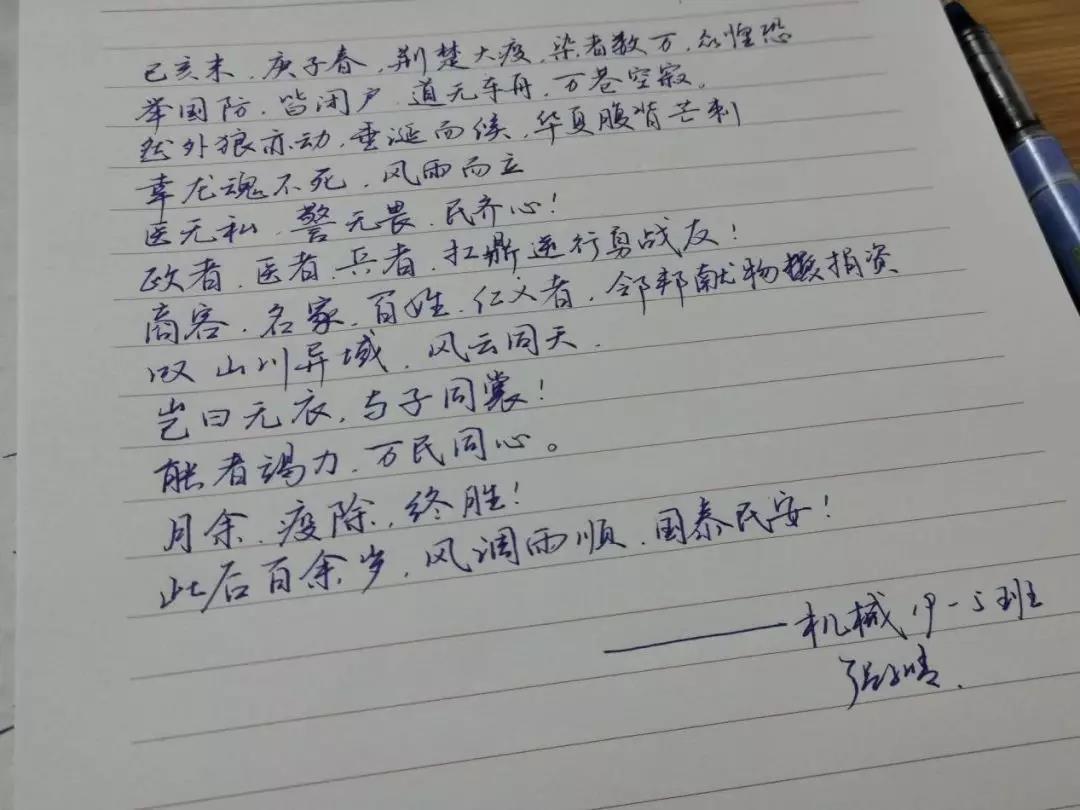 已亥末，庚子春，荆楚大疫，染者数万，众惶恐
举国防，皆闭户，道无车舟，万巷空寂。
然外狼亦动，垂涎而候，华夏腹背芒刺
幸龙魂不死，风雨而立
医无私，警无畏，民齐心！
政者，医者，兵者，扛鼎逆行勇战友！
商客，名家，百姓，仁义者，邻邦献物捐资
叹 山川异域，风云同天．
岂曰无衣，与子同裳！
能者竭力，万民同心。
月余，疫除，终胜！
此后百余岁，风调雨顺，国泰民安！
——机械19-5班